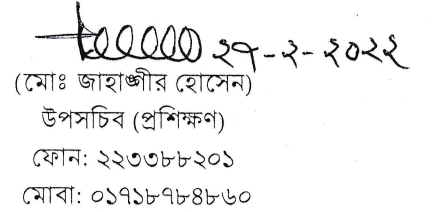 ২৭-২-২০২২
(মোঃ জাহাঙ্গীর হোসেন)
উপসচিব (প্রশিক্ষণ)
ফোন: ২২৩৩৮৮২০১
মোবা: ০১৭১৮৭৮৪৮৬০